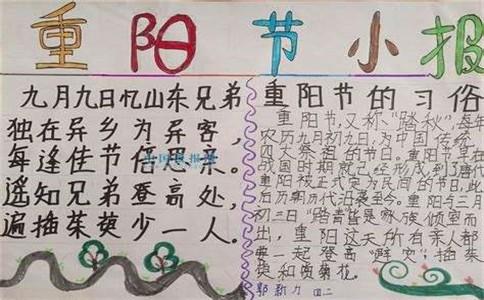 重阳节小报
九月九日忆山东兄弟
独在异乡为异客，
每逢佳节倍思亲。
遥知兄弟登高处，
遍插茱萸少一人。
重阳节的习俗
重阳节，又称“踏秋”，每年
农历九月初九日，为中国传统
的节日。重阳节早在
战国时期就已经形成，到了唐代
重阳被正式定为民间的节日，此
后历朝历代沿袭至今。重阳与三月
初三日“踏青”皆是家族倾室而
出，重阳这天所有亲人都
要一起登高“避灾”，插茱
萸和赏菊花。
四二